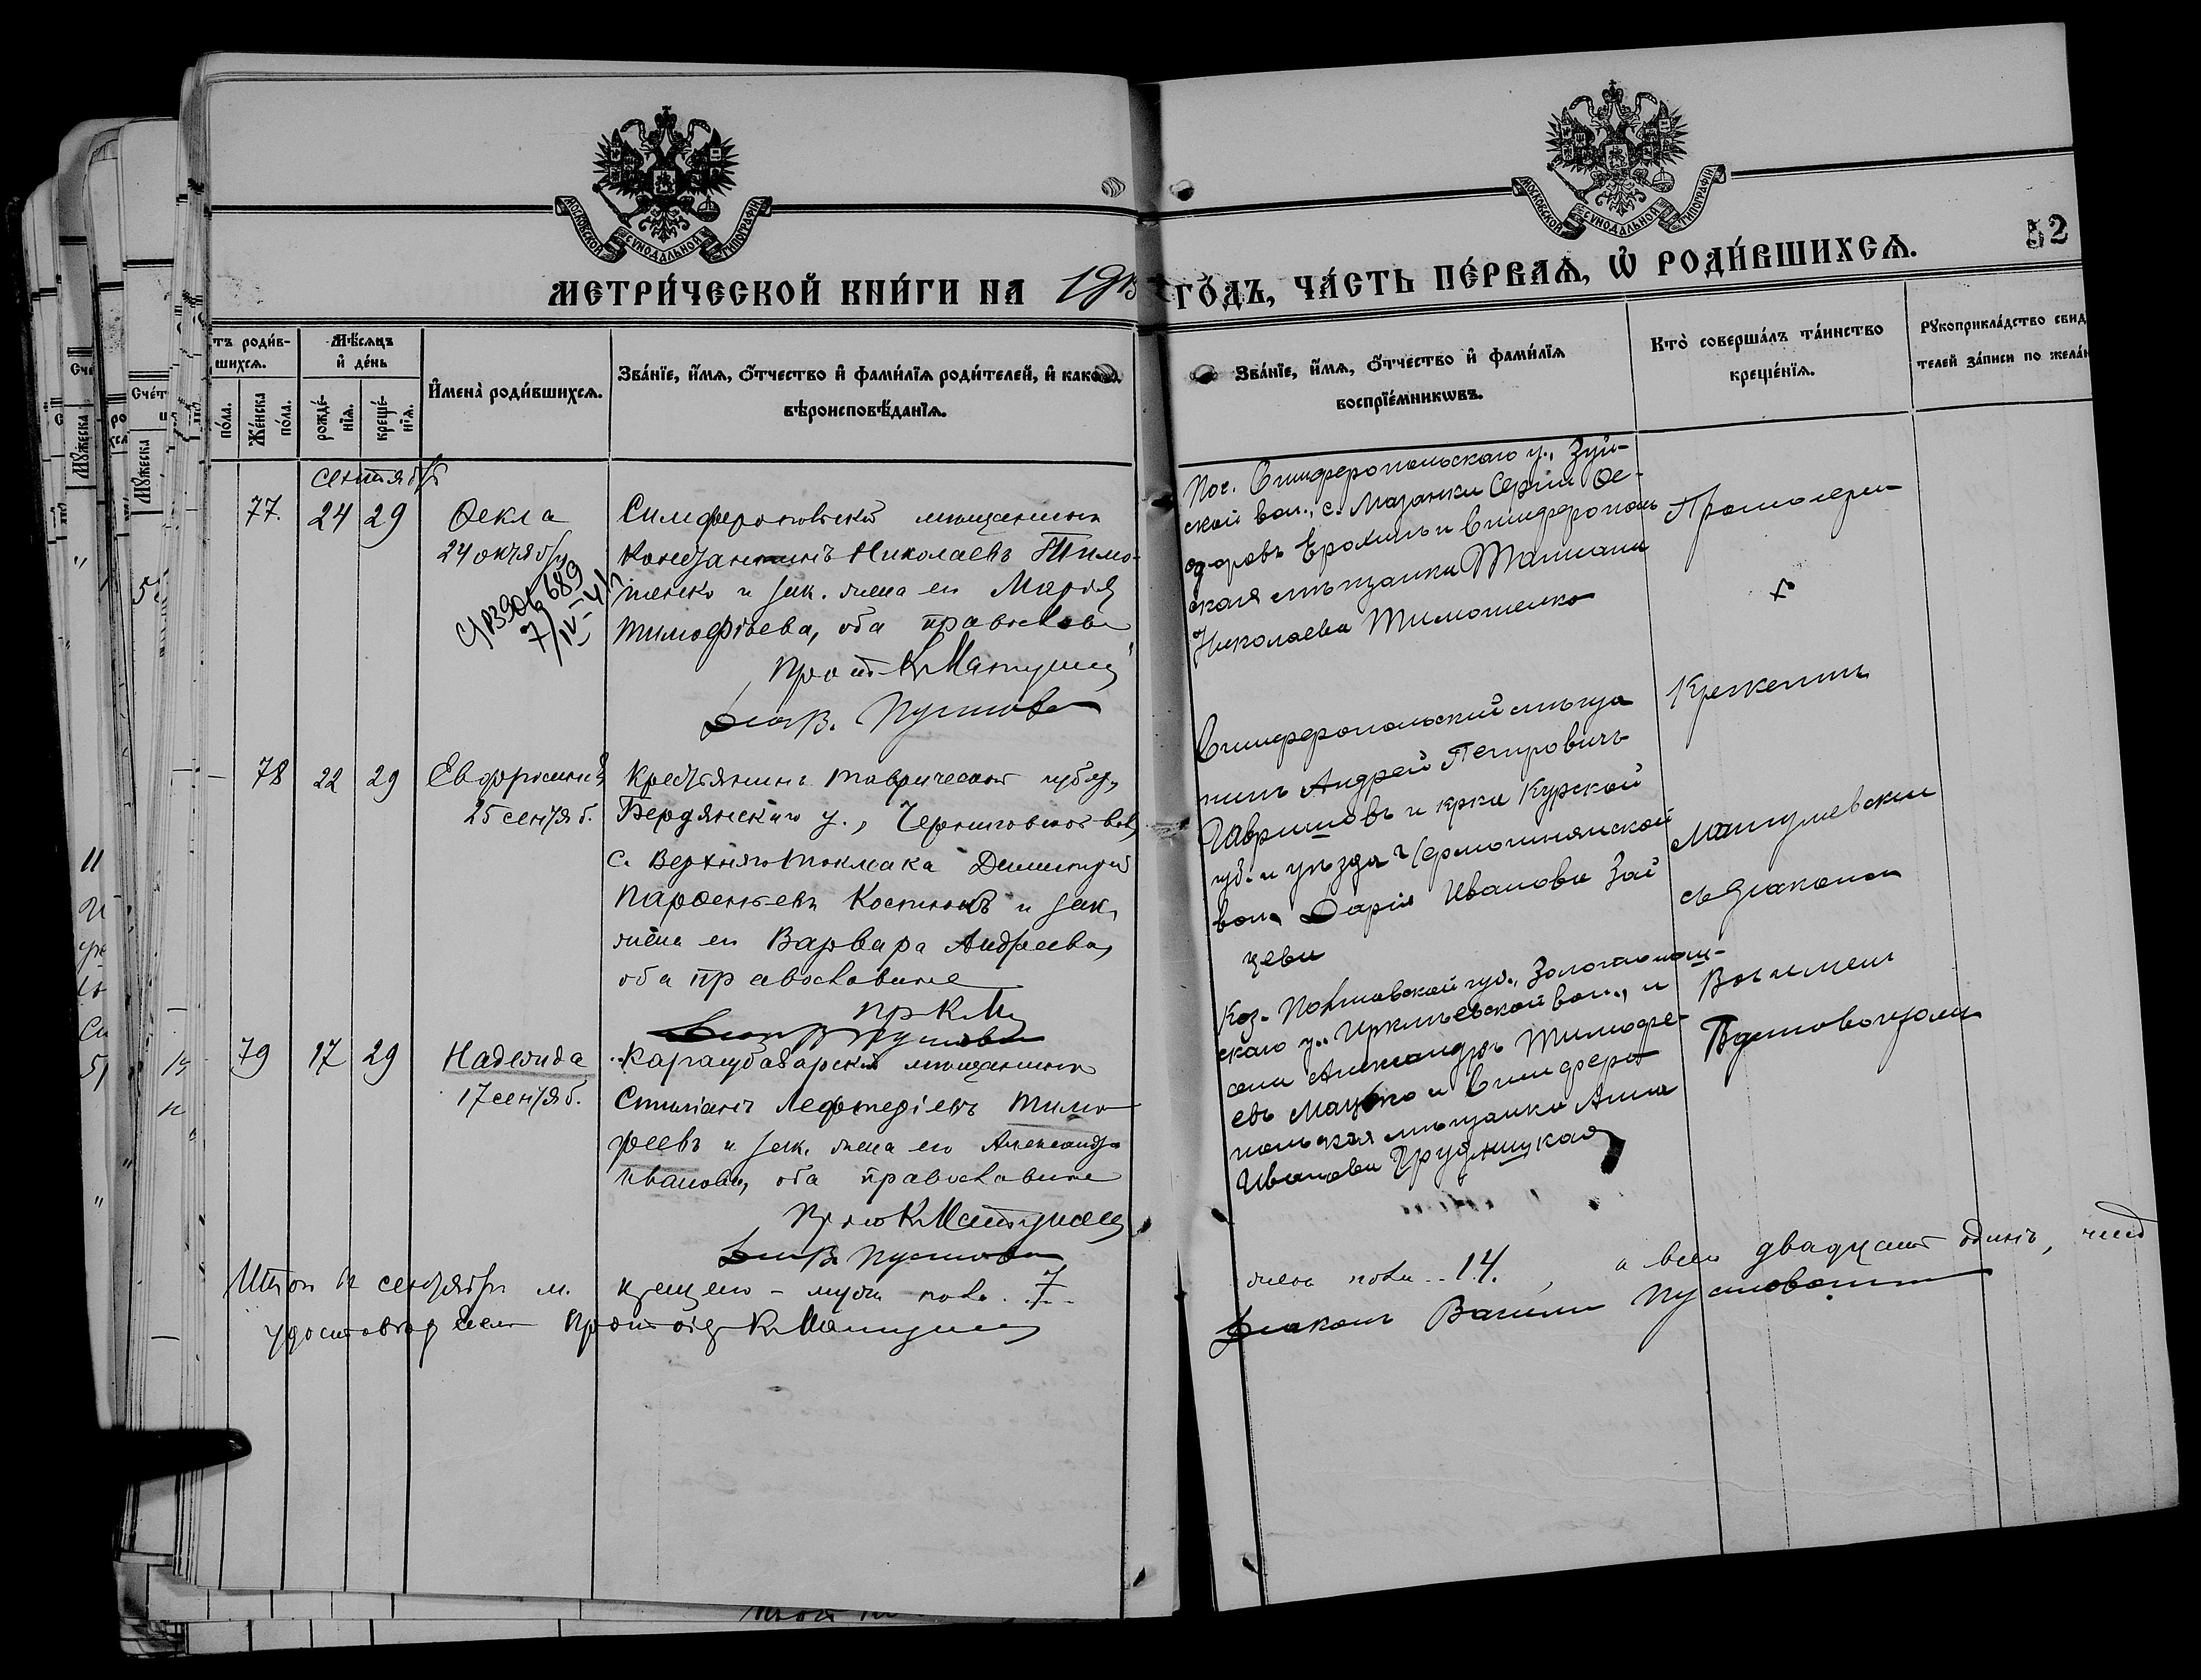 МОСКОВСКОЙ СѴНОДАЛЬНОЙ ТИПОГРАФІИ
МОСКОВСКОЙ СѴНОДАЛЬНОЙ ТИПОГРАФІИ
52
МЕТРИ́ЧЕСКОЙ КНИ́ГИ НА 1913 ГО́ДЪ, ЧА́СТЬ ПЕ́РВАѦ, Ѡ РОДИ́ВШИХСѦ.
тъ роди́в-
шихсѧ.
по́ла.
Же́нска по́ла.
Мѣ́сѧцъ
и҆ де́нь
рожде́-
нїѧ.
креще́-
нїѧ.
И҆мена̀ роди́вшихсѧ.
Зва́нїе, и҆́мѧ, ѻ҆́тчество и҆ фами́лїѧ роди́телей, и҆ како́гѡ
вѣроисповѣ́данїѧ.
Зва́нїе, и҆́мѧ, ѻ҆́тчество и҆ фами́лїѧ
воспрїе́мникѡвъ.
Кто̀ соверша́лъ та́инство
креще́нїѧ.
Рꙋкоприкла́дство свид
телей за́писи по жела́н
сентябрь
77. 24 29
Ѳекла
24 октября
689
7/IV-41
Симферопольскій мѣщанинъ
Константинъ Николаевъ Тимо-
шенко и зак. жена его Марія
Тимофѣева, оба православн
Прот К Матушев
Діак В. Пустовой
Пос. Симферопольскаго у., Зуй-
ской вол., с. Мазанки Сергій Ѳе-
одоровъ Ерохинъ и Симферополь
ская мѣщанка Татіана
Николаева Тимошенко
Протоіерей
78 22 29
Евфросинія
25 сентяб.
Крестьянинъ Таврической губ.,
Бердянскаго у., Черниговской вол.,
с. Верхняго Токмака Димитрій
Парѳеньевъ Костинъ и зак.
жена его Варвара Андреева,
оба православные
Пр К М
Діак В Пустовой
Симферопольскій мѣща
нинъ Андрей Петровичъ
Гавришовъ и крка Курской
губ. и уѣзда
вол. Дарія Иванова Зай
цева
Матушевскій
съ діакономъ
79 17 29
Надежда
17 сентяб.
Карасубазарскій мѣщанинъ
Стиліанъ Лефтеріевъ Тимо
феевъ и зак. жена его Александра
Иванова, оба православные
Прот К Матушев
Діак В. Пустовой
Коз. Полтавской губ., Золотонош-
скаго у., Ирклѣевской вол., и
Александръ Тимофе-
евъ Мацько и Симферо
польская мѣщанка Анна
Иванова Грудницкая
Василіемъ
Пустовойтомъ
Итого въ сентябрѣ м. крещено - мужск пола. 7. женск пола .. 14. , а всего двадцать одинъ, чемъ
удостовѣряемъ Протоіер К Матушев
Діаконъ Василій Пустовойтъ